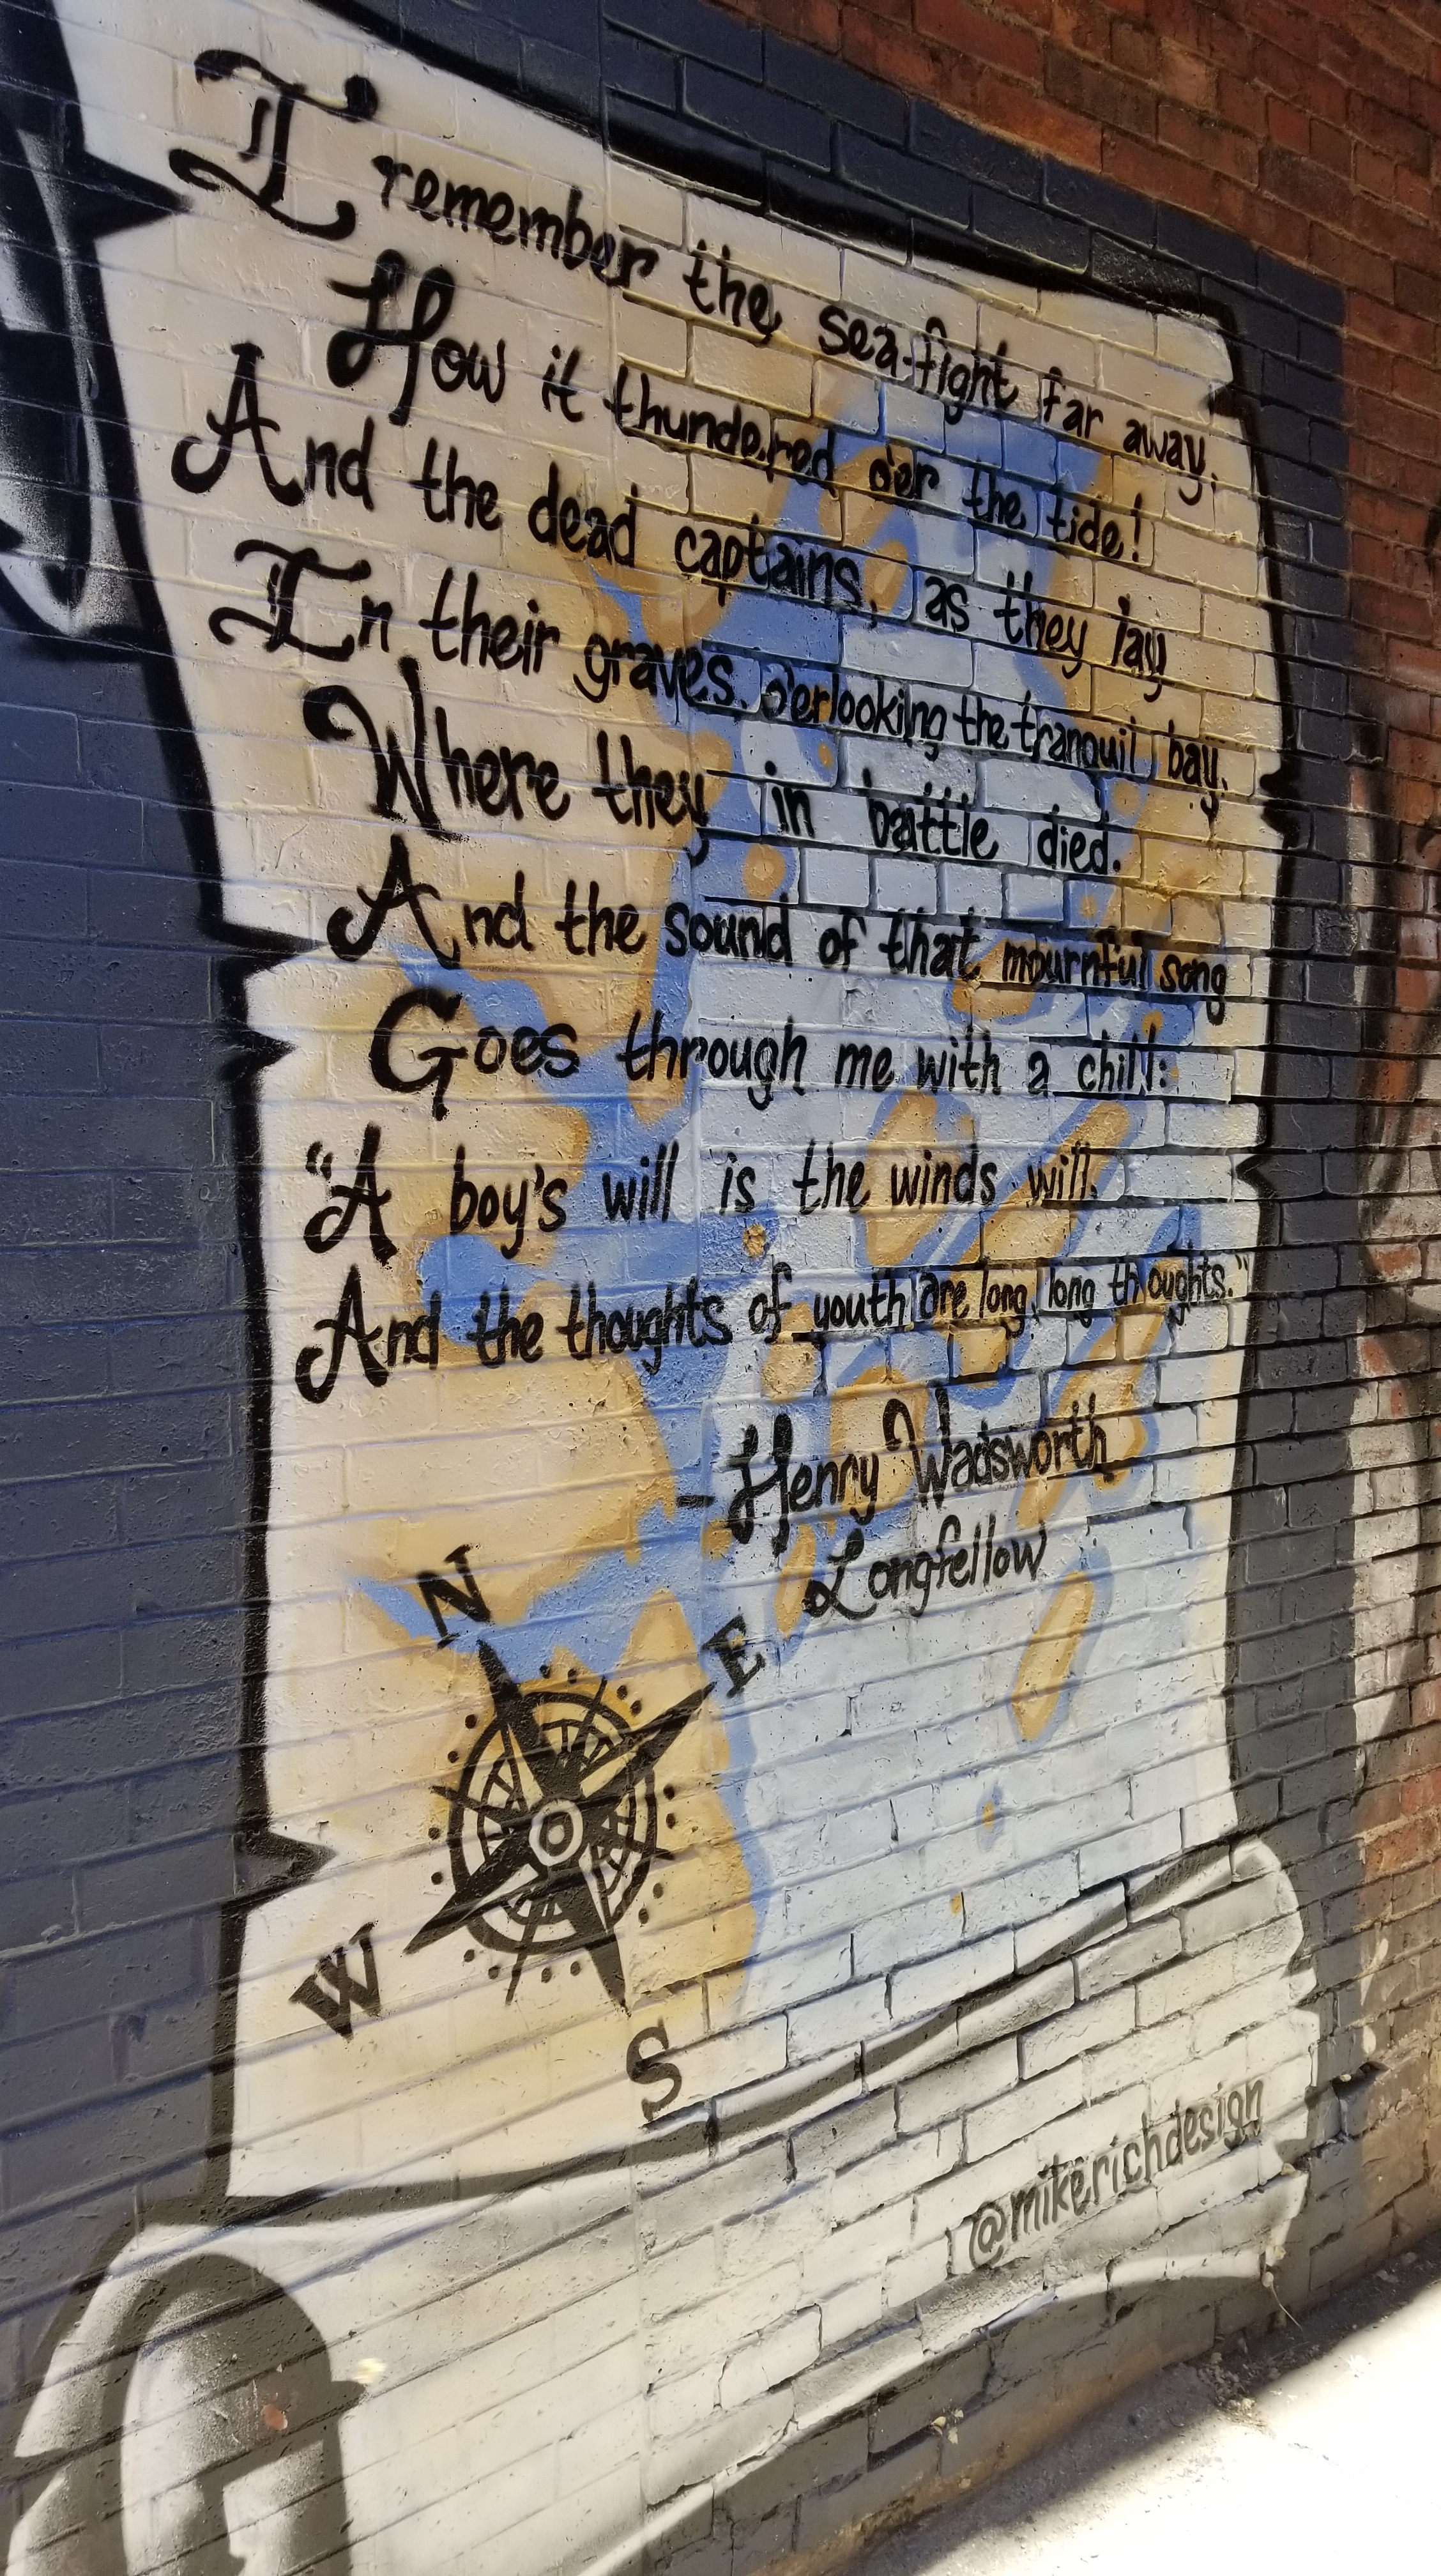 I remember the sea-fight far away,
How it thundered o'er the tide!
And the dead captains, as they lay
In their graves, o'erlooking the tranquil bay,
Where they in battle died.
And the sound of that mournful song
Goes through me with a chill:
"A boy's will is the winds will,
And the thoughts of youth are long, long thoughts."
- Henry Wadsworth
Longfellow
N
E
W
S
@mikerichdesign